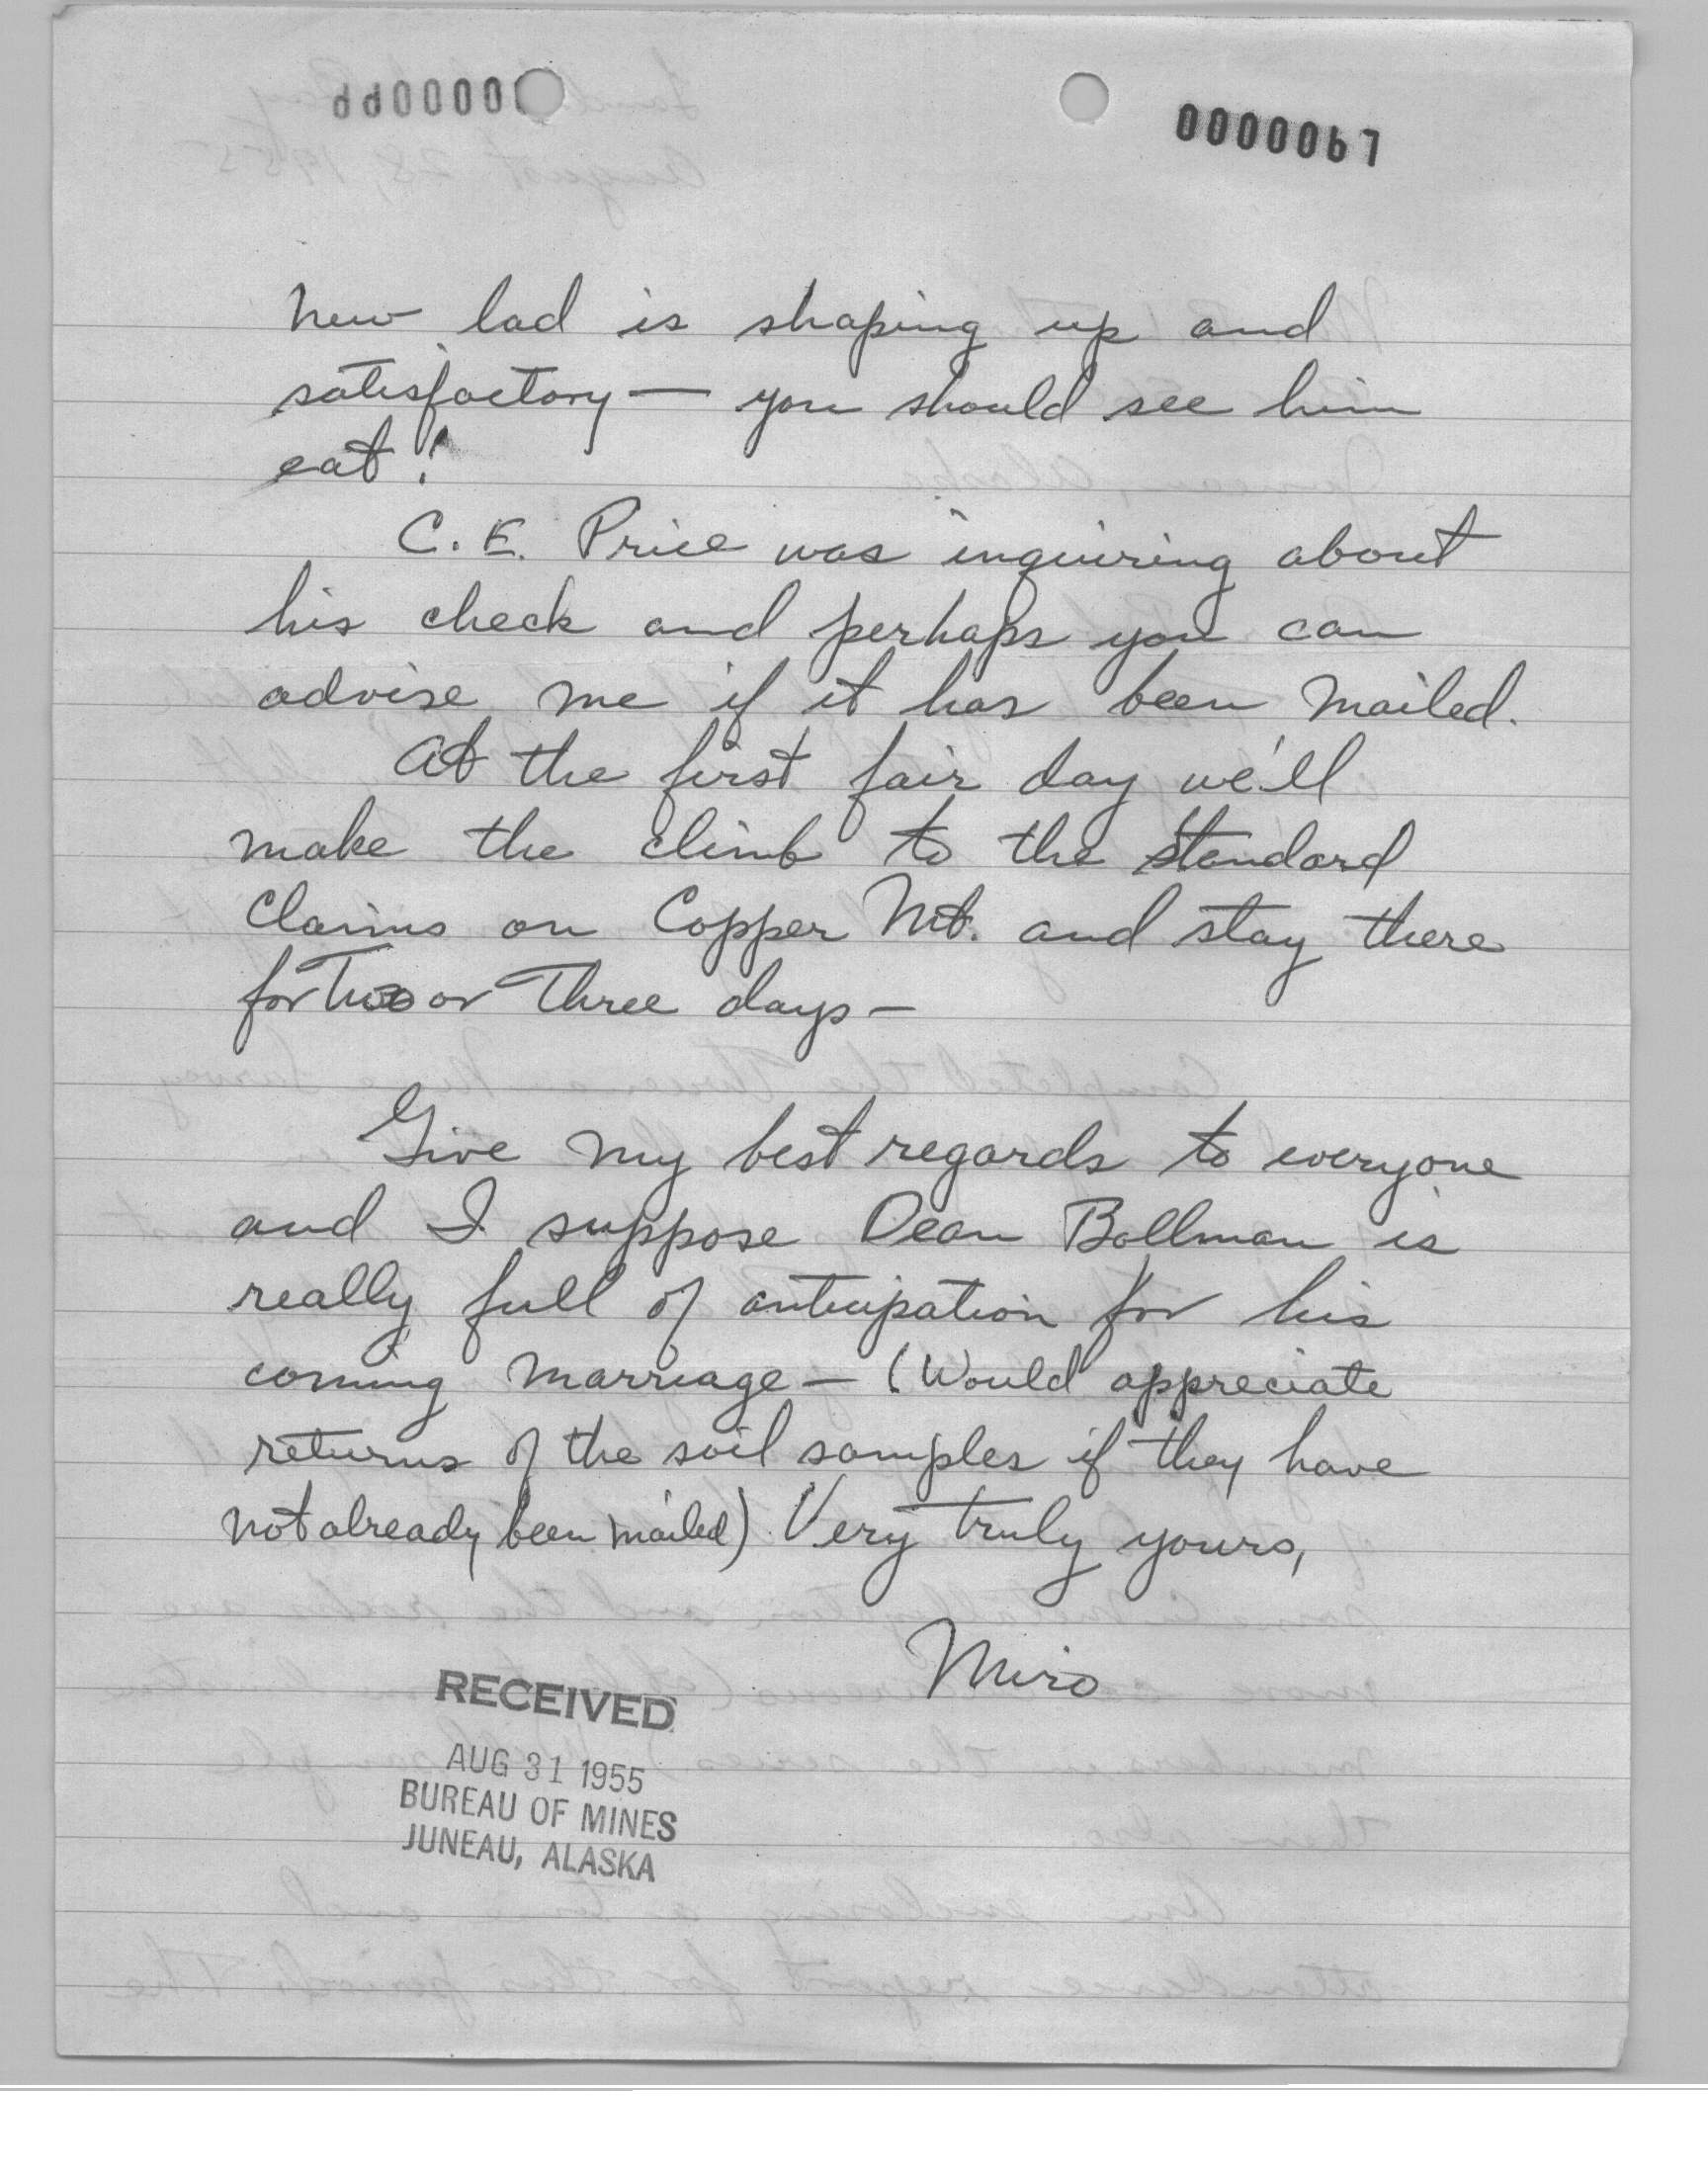 0000067
new lad is shaping up and
satisfactory — you should see him
eat!
C. E. Price was inquiring about
his check and perhaps you can
advise me if it has been mailed.
At the first fair day we'll
make the climb to the Standard
Claims on Copper Mt. and stay there
for Two or Three days —
Give my best regards to everyone
and I suppose Dean Bollman is
really full of anticipation for his
coming marriage — (Would appreciate
returns of the soil samples if they have
not already been mailed) Very truly yours,
Miro
RECEIVED
AUG 31 1955
BUREAU OF MINES
JUNEAU, ALASKA